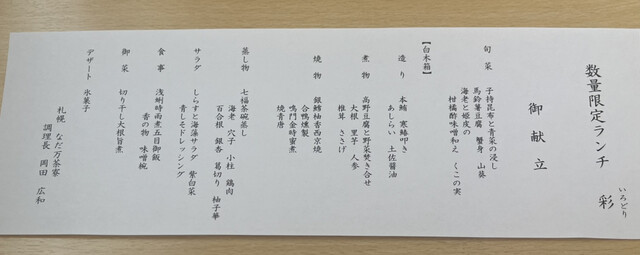 数量限定ランチ 彩
いろどり
御献立
旬菜 子持昆布と青菜の浸し
馬鈴薯豆腐 蟹身 山葵
海老と姫皮の
柑橘酢味噌和え くこの実
【白木箱】
造り 本鮪 寒鰆叩き
あしらい 土佐醤油
煮物 高野豆腐と野菜焚き合せ
大根 里芋 人参
椎茸 ささげ
焼物 銀鱈柚香西京焼
合鴨燻製
鳴門金時蜜煮
焼青唐
蒸し物 七福茶碗蒸し
海老 穴子 小柱 鶏肉
百合根 銀杏 葛切り 柚子華
サラダ しらすと海藻サラダ 紫白菜
青しそドレッシング
食事 浅蜊時雨煮五目御飯
香の物 味噌椀
御菜 切り干し大根旨煮
デザート 氷菓子
札幌 なだ万茶寮
調理長 岡田 広和